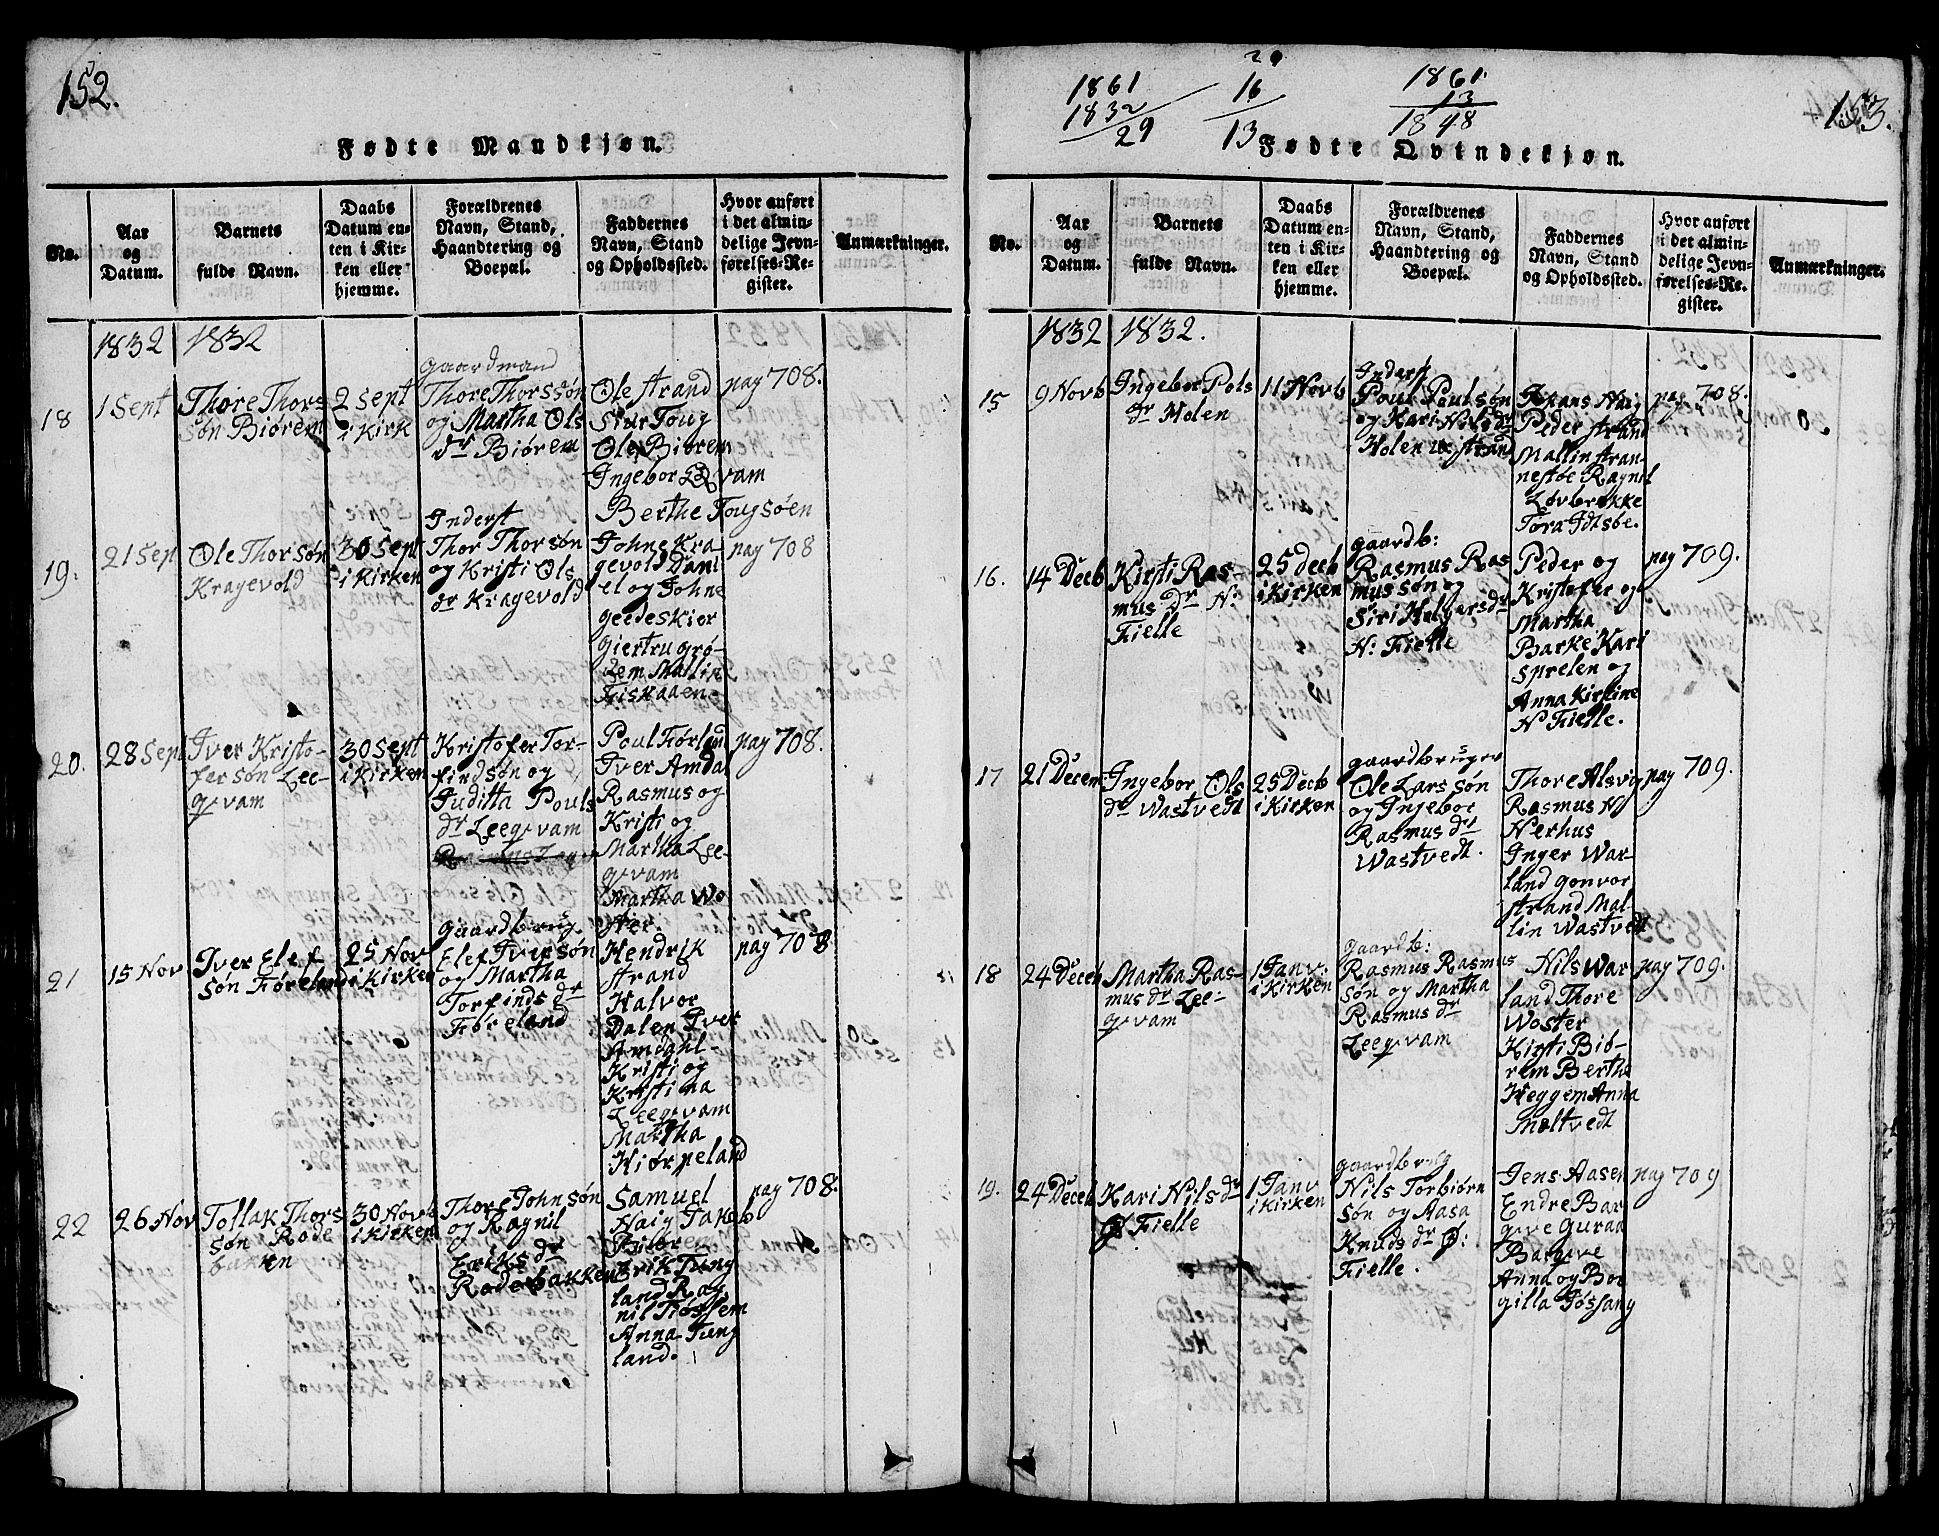 152.
Fødte Mandkjøn.
No.
Aar
og
Datum.
Barnets
fulde Navn.
Daabs
Datum en-
ten i Kir-
ken eller
hjemme.
Forældrenes
Navn, Stand,
Haandtering og
Boepæl.
Faddernes
Navn, Stand
og Opholdssted.
Hvor anført
i det almin-
delige Jevn-
førelses-Re-
gister.
Anmærkninger.
1832
1832
18
1 Sept
Thore Thors
søn Biørem
2 Sept
i Kirk
Gaardmand
Thore Thorssøn
og Martha Ols
dr Biørem
Ole Strand
Siur Toug
Ole Biørem
Ingebor Qvam
Berthe Tougsøen
pag 708.
19.
21 Sep
Ole Thorsøn
Kragevold
30 Sept
i Kirken
Inderst
Thor Thorsøn
og Kristi Ols
dr Kragevold
Johne Kra-
gevold Dani
el og Johne
geedeskier
giertru grø-
dem Mallin
Fiskaaen
pag 708
20.
28 Sept
Iver Kristo-
fersøn Lee-
qvam
30 Sept
i Kirken
Kristofer Tor-
findsøn og
Juditta Pouls
dr Leeqvam
Poul Førland
Iver Amdal
Rasmus og
Kristi og
Martha Lee-
qvam
Martha Wo
ster.
pag 708.
21
15 Nov
Iver Elef
søn Føreland
25 Nov
i Kirken
Gaardbrug
Elef Iversøn
og Martha
Torfinds dr
Føreland
Hendrik
Strand
Halvor
Dalen Iver
Amdahl
Kristi og
Kristina
Leeqvam
Martha
Hiørpeland
pag 708
22
26 Nov
Tollak Thors
søn Rode
bakken
30 Novb
i Kirken
Thore Johnsøn
og Ragnil
Eriks dr
Rodebakken
Samuel
Haig Jakob
Erik Tung
land Rag
nil Fiøslem
Anna Tung
land.
pag 708.
153.
1861
1832
29
29
16
13
1861
13
1848
Fødte Qvindekjøn.
No.
Aar
og
Datum.
Barnets
fulde Navn.
Daabs
Datum en-
ten i Kir-
ken eller
hjemme.
Forældrenes
Navn, Stand,
Haandtering og
Boepæl.
Faddernes
Navn, Stand
og Opholdssted.
Hvor anført
i det almin-
delige Jevn-
førelses-Re-
gister.
Anmærkninger.
1832
1832.
15
9 Novb
Ingebor Pols
dr Holen
11 Novb
Inderst
Poul Poulsøn
og Kari Nilsdr
Holen u: Strand
Haig
Peder Strand
Mallin Stran-
nestøe Ragnil
Løvbrekke
Tora Idtsøe.
pag 708.
16.
14 Decb
Kirsti Ras
mus dr N:
Fielle
25 Decb
i Kirken
gaardb:
Rasmus Ras
mussøn og
Siri Helgersdr
N: Fielle
Peder og
Kristofer og
Martha
Barke Kari
sprelen og
Anna Kirstine
N Fielle.
pag 709.
17
21 Decem
Ingebor Ols
dr Wastvedt
25 Decb
i Kirken
gaardbruger
Ole Larssøn
og Ingebor
Rasmus dr
Wastvedt.
Thore Alsvig
Rasmus
Nerhus
Inger War-
land gonvor
Strand Mal-
lin Wastvedt
pag 709.
18
24 Decb
Martha Ras-
mus dr Lee-
qvam
1 Janv.
i Kirken
gaardb:
Rasmus Rasmus
søn og Martha
Rasmus dr
Leeqvam
Nils War
land Thore
Woster
Kirsti Biø-
rem Berthe
Heggem Anna
Mæltvedt
pag 709.
19.
24 Decb
Kari Nils dr
Ø Fielle
1 Janv
i Kirken
gaardbrug
Nils Torbiørn
søn og Aasa
Knuds dr Ø:
Fielle.
Jens Aasen
Endre Bar
gave Guraa
Bargve
Anna og Bor
gilla Jøssang
pag 709